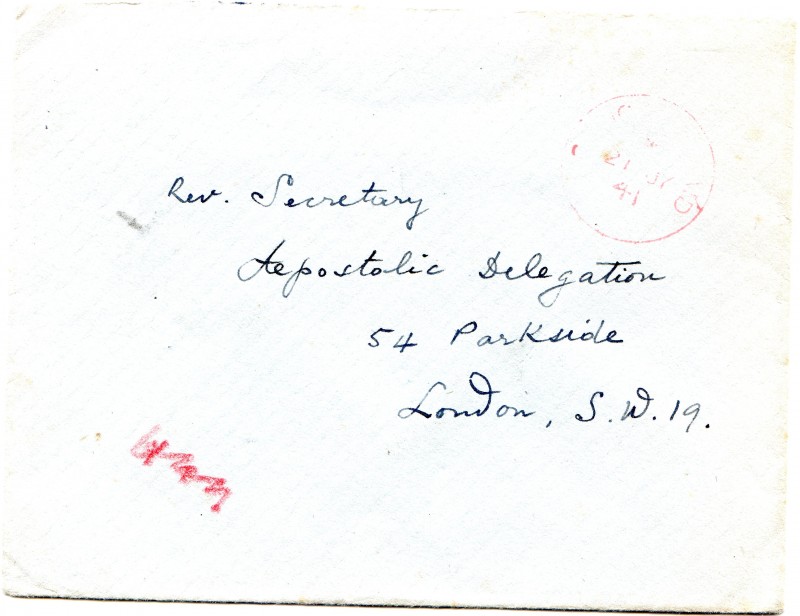 Rev. Secretary
Apostolic Delegation
54 Parkside
London, S.W.19.
21 JY
41